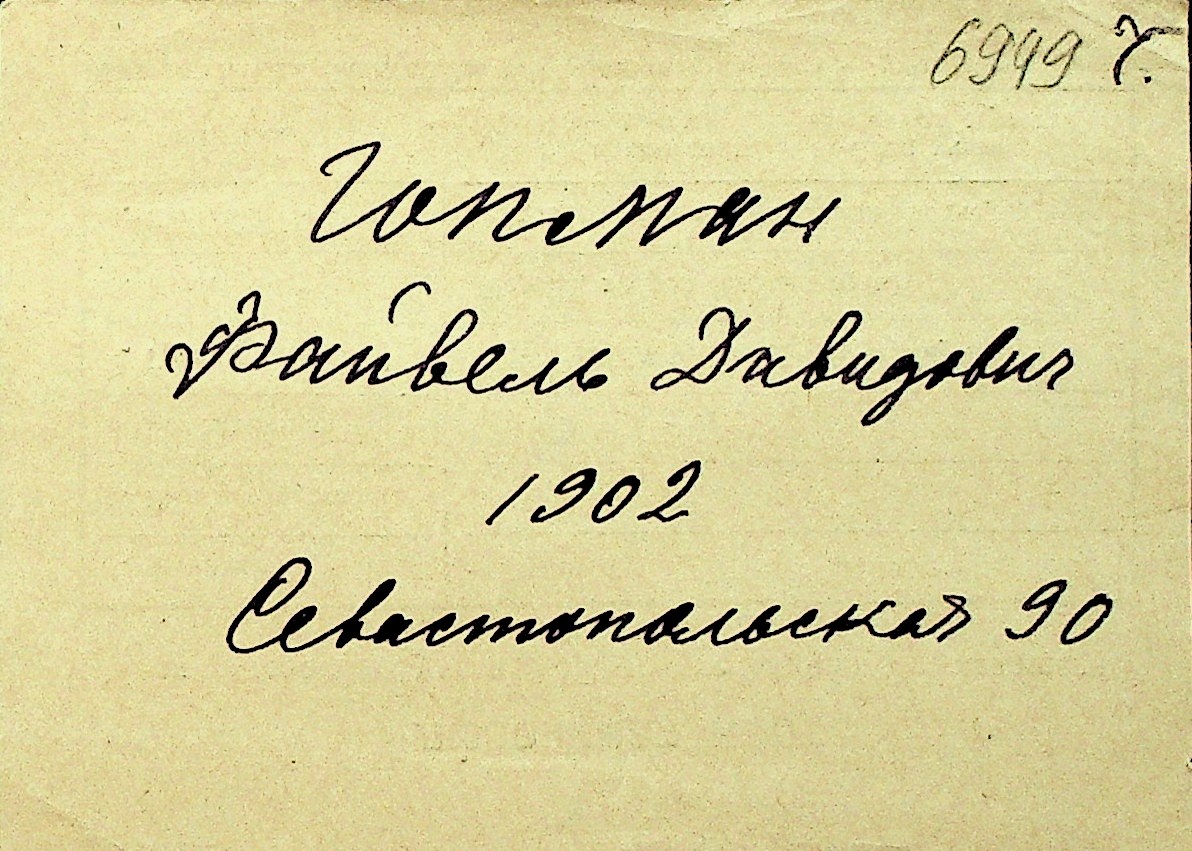 6949 Г.
Гопман
Файвель Давидович
1902
Севастопольская 90